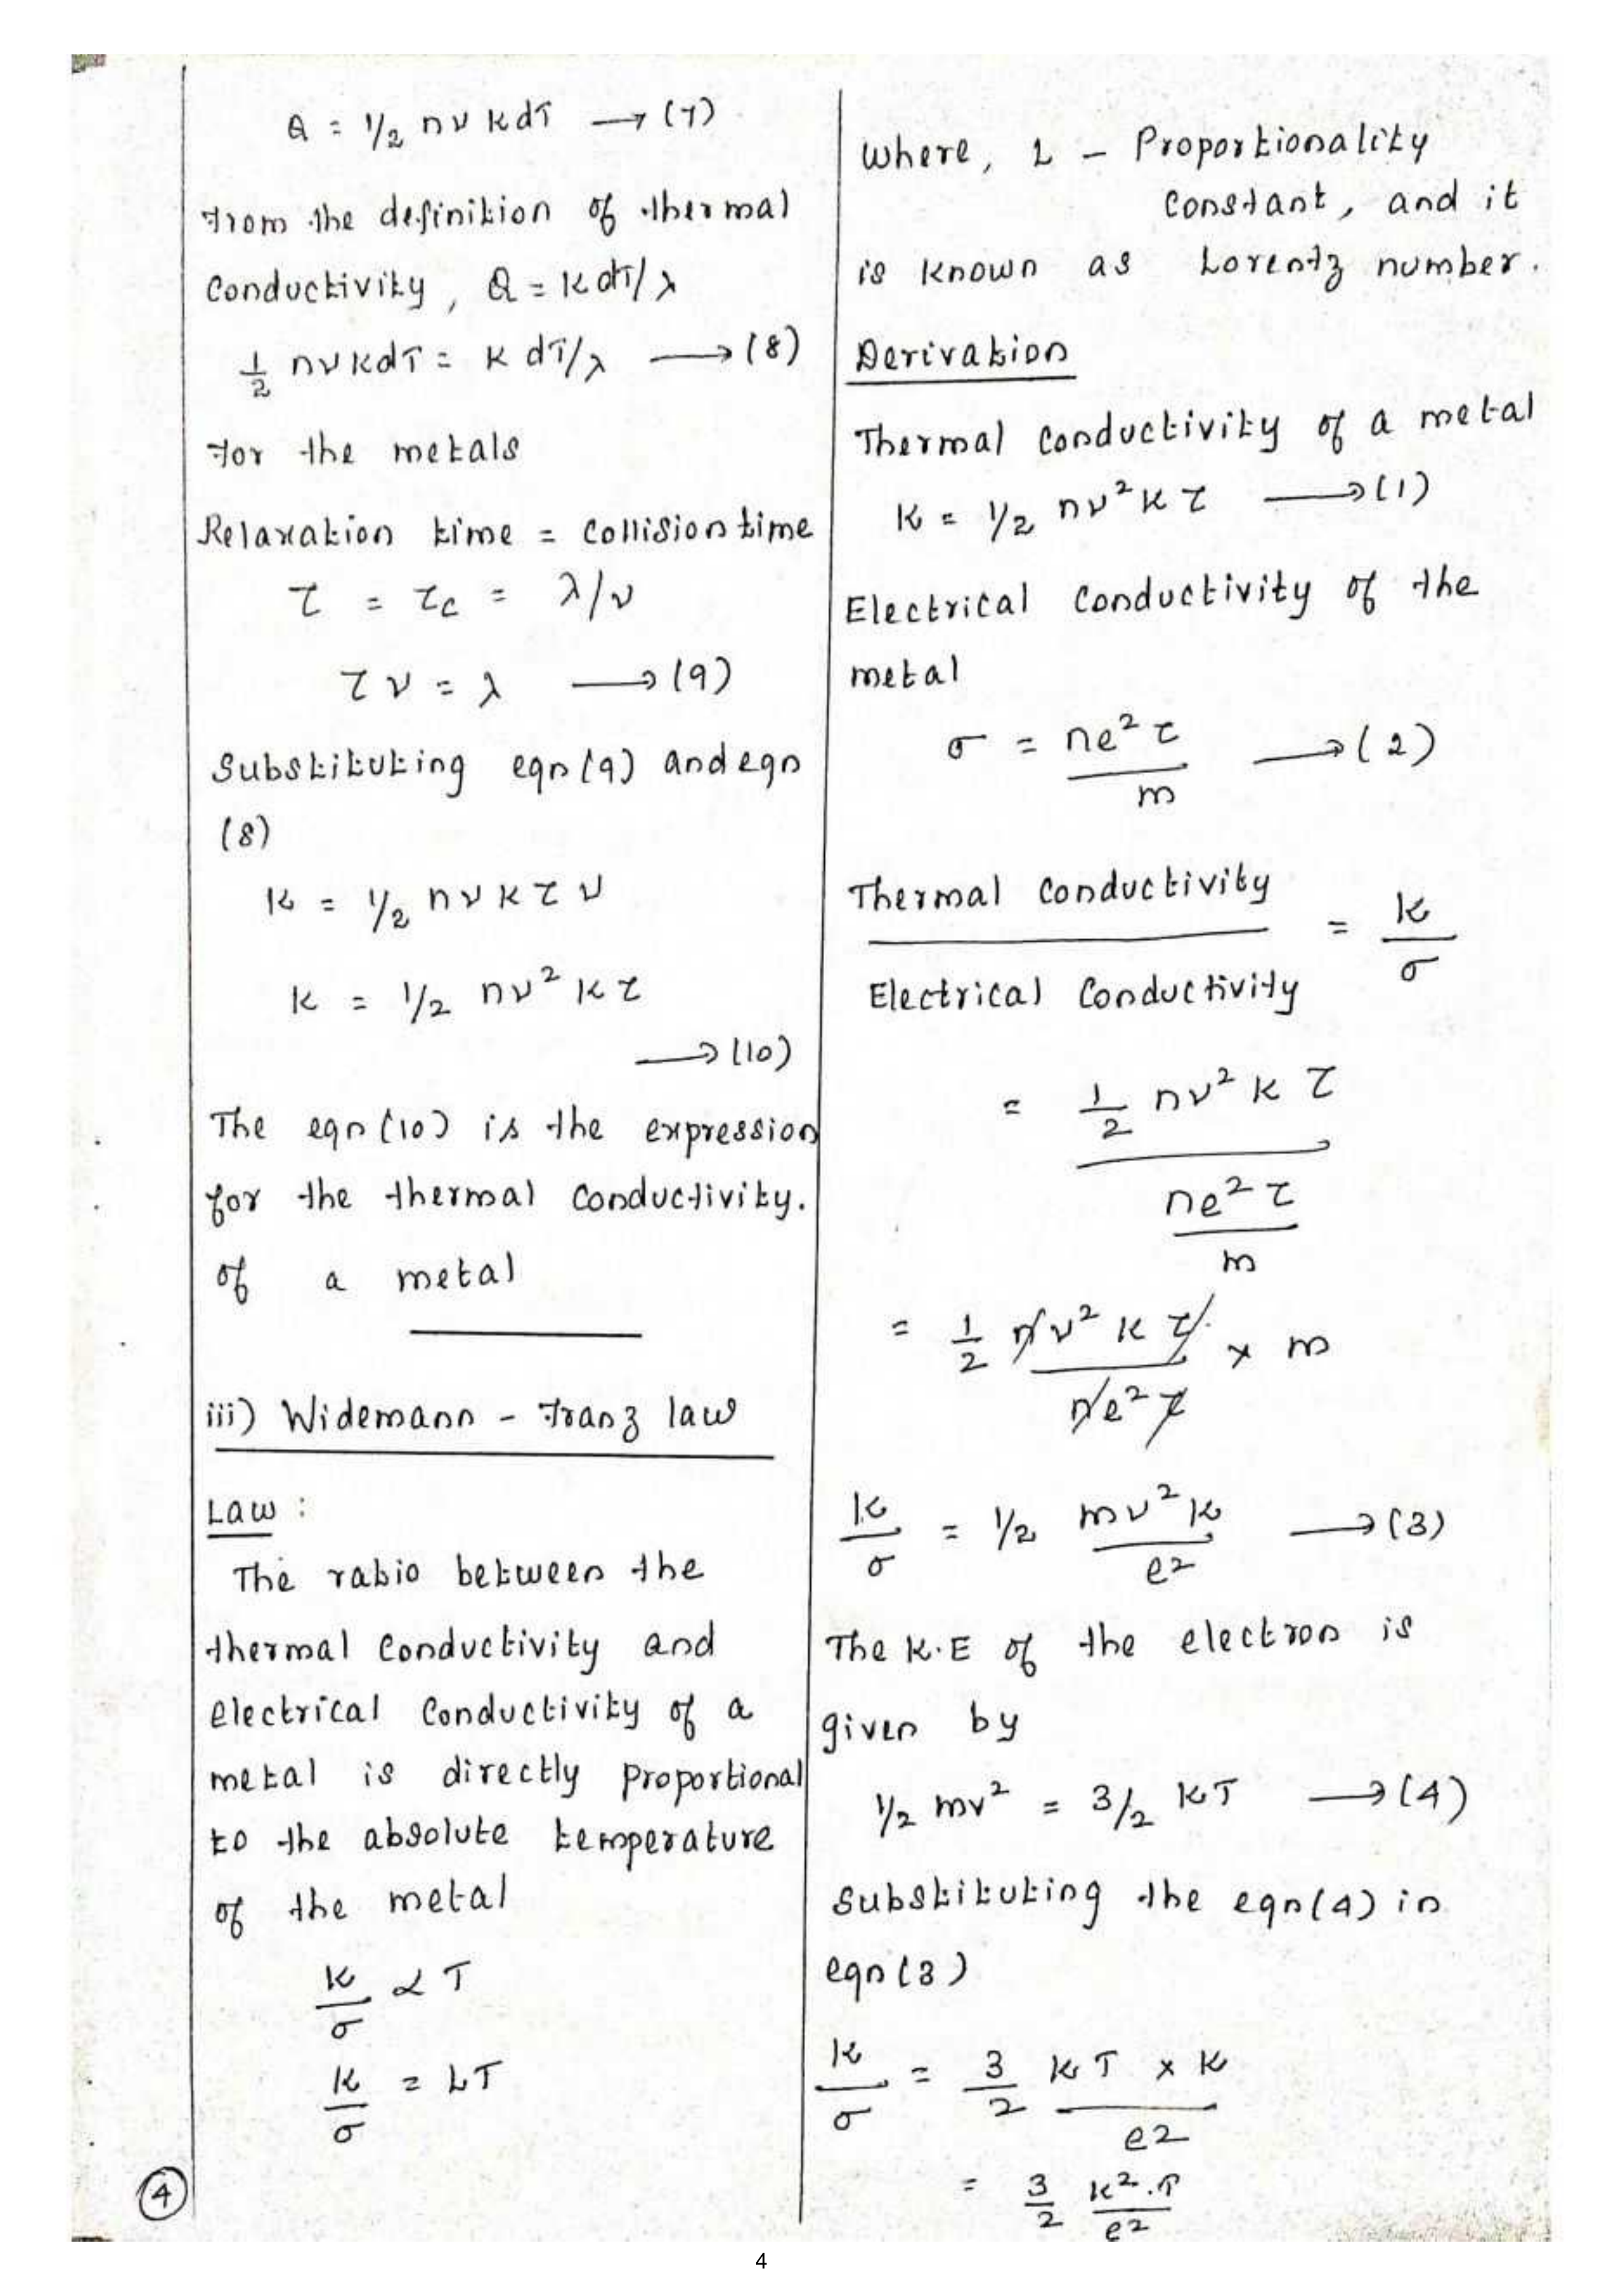 Q = 1/2 nν K dT → (7)
From the definition of thermal
Conductivity, Q = K dT/λ
1/2 nν K dT = K dT/λ → (8)
For the metals
Relaxation time = Collision time
τ = τc = λ/ν
τν = λ → (9)
Substituting eqn (9) and eqn
(8)
K = 1/2 nν K τ ν
K = 1/2 nν² K τ
→ (10)
The eqn (10) is the expression
for the thermal conductivity.
of a metal
iii) Widemann - Franz law
Law :
The ratio between the
thermal conductivity and
electrical conductivity of a
metal is directly proportional
to the absolute temperature
of the metal
K/σ α T
K/σ = LT
4
where, L - Proportionality
Constant, and it
is known as Lorentz number.
Derivation
Thermal conductivity of a metal
K = 1/2 nν² K τ → (1)
Electrical conductivity of the
metal
σ = ne²τ/m → (2)
Thermal conductivity / Electrical Conductivity = K/σ
= 1/2 nν² K τ / ne²τ/m
= 1/2 nν² K τ / ne²τ × m
K/σ = 1/2 mν² K / e2 → (3)
The K.E of the electron is
given by
1/2 mv² = 3/2 KT → (4)
Substituting the eqn (4) in
eqn (3)
K/σ = 3/2 KT × K / e2
= 3/2 K².T / e2
4